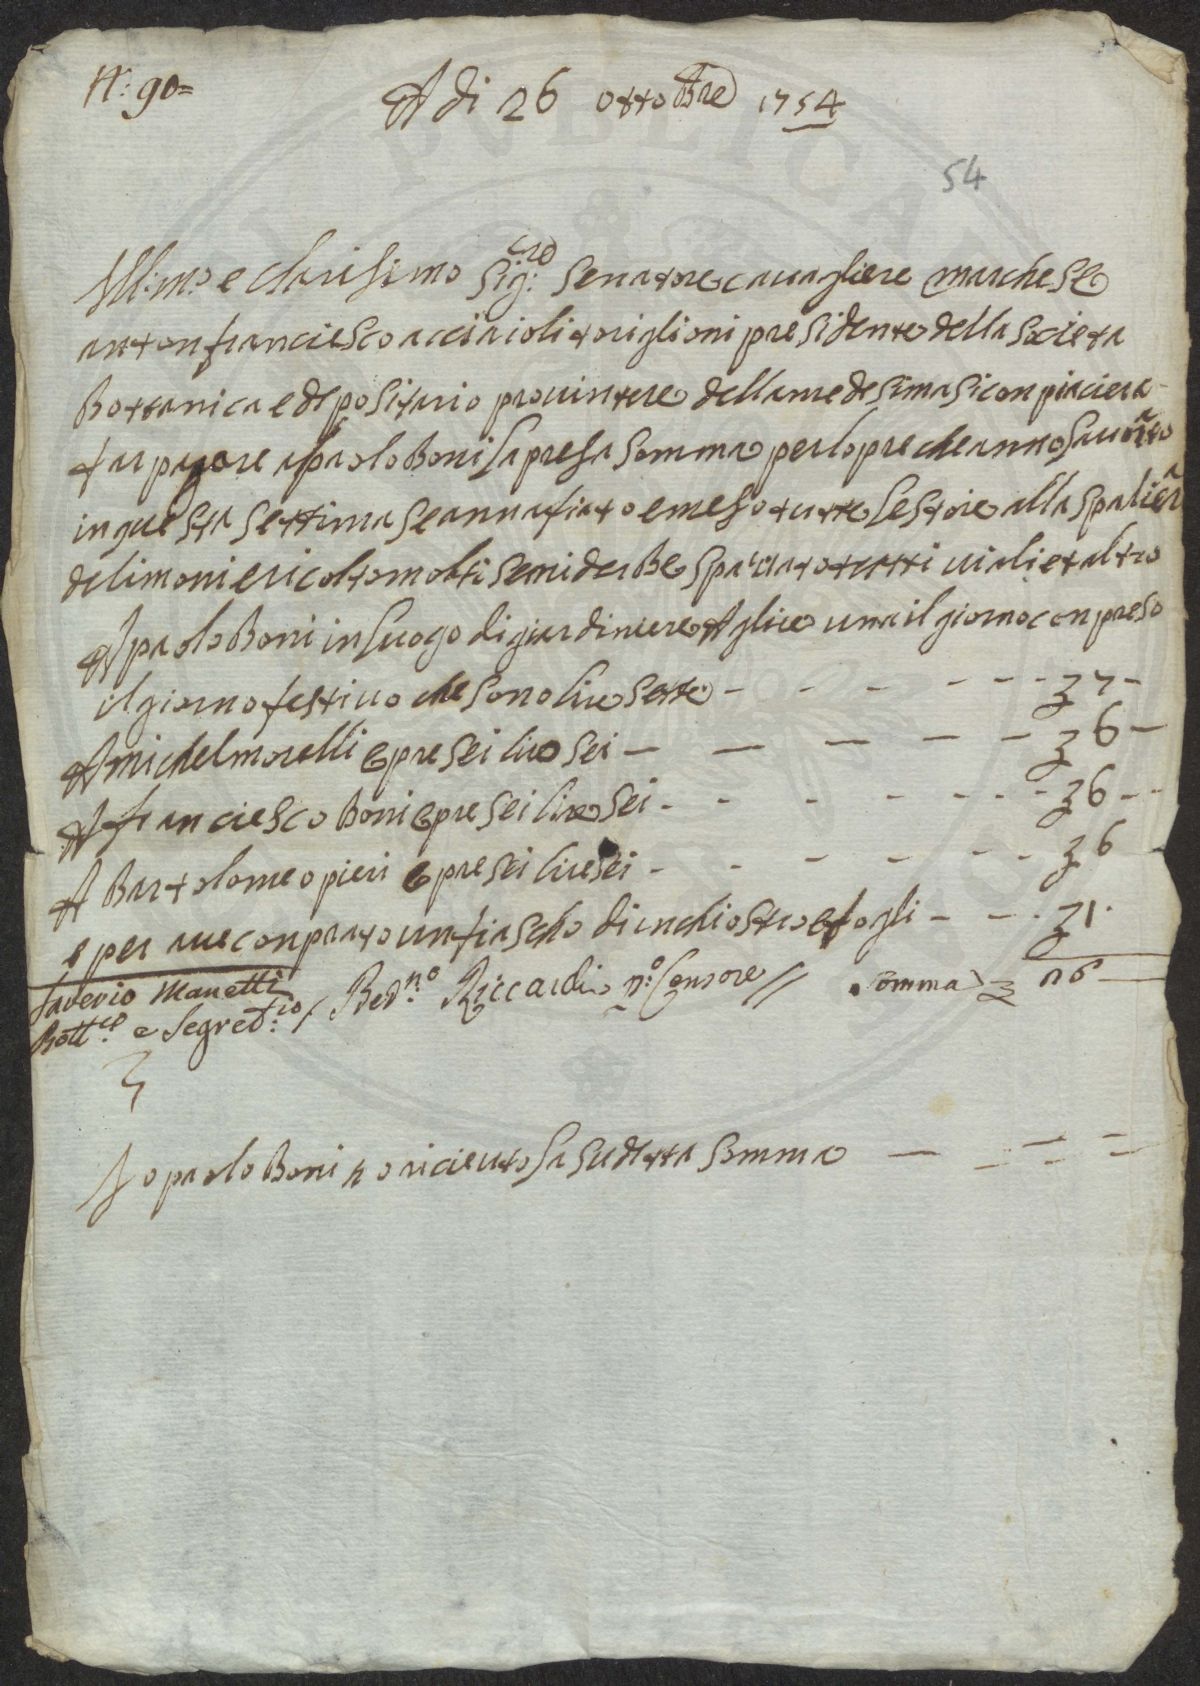 N: 90=
A di 26 ottobre 1754
54
Ill:mo e Clarisimo Sig:re Senatore cavagliere marchese
antonfranciesco acciaioli toriglioni presidente della Societa
Bottanica e depositario provintere della medesima si conpiaciera
far pagare a paolo Boni la presa Somma per lopre che anno lavorato
in questa settima se annafiato e meso tutte le store alla spaliera
de limoni e ricolto molti semi de erBe spaciato tutti i viali et altro
A paolo Boni in luogo di giardiniere A glire una il giorno conpreso
il giorno festivo che sono lire sette - - - - - - ʒ 7 -
A michel morelli opre sei lire sei - - - - - ʒ 6 -
A franciesco Boni opre sei lire sei - - - - - - ʒ 6 - -
A Bartolomeo pieri opre sei lire sei - - - - - - ʒ 6
e per aver conprato un fiascho di inchiostro e fogli - - - ʒ 1 -
Saverio Manetti
Bott:co e Segret:rio / Bern:o Riccardi p:o Censore // Somma ʒ 26
PVBLICA
Io paolo Boni o riceuto la sudetta somma - - -